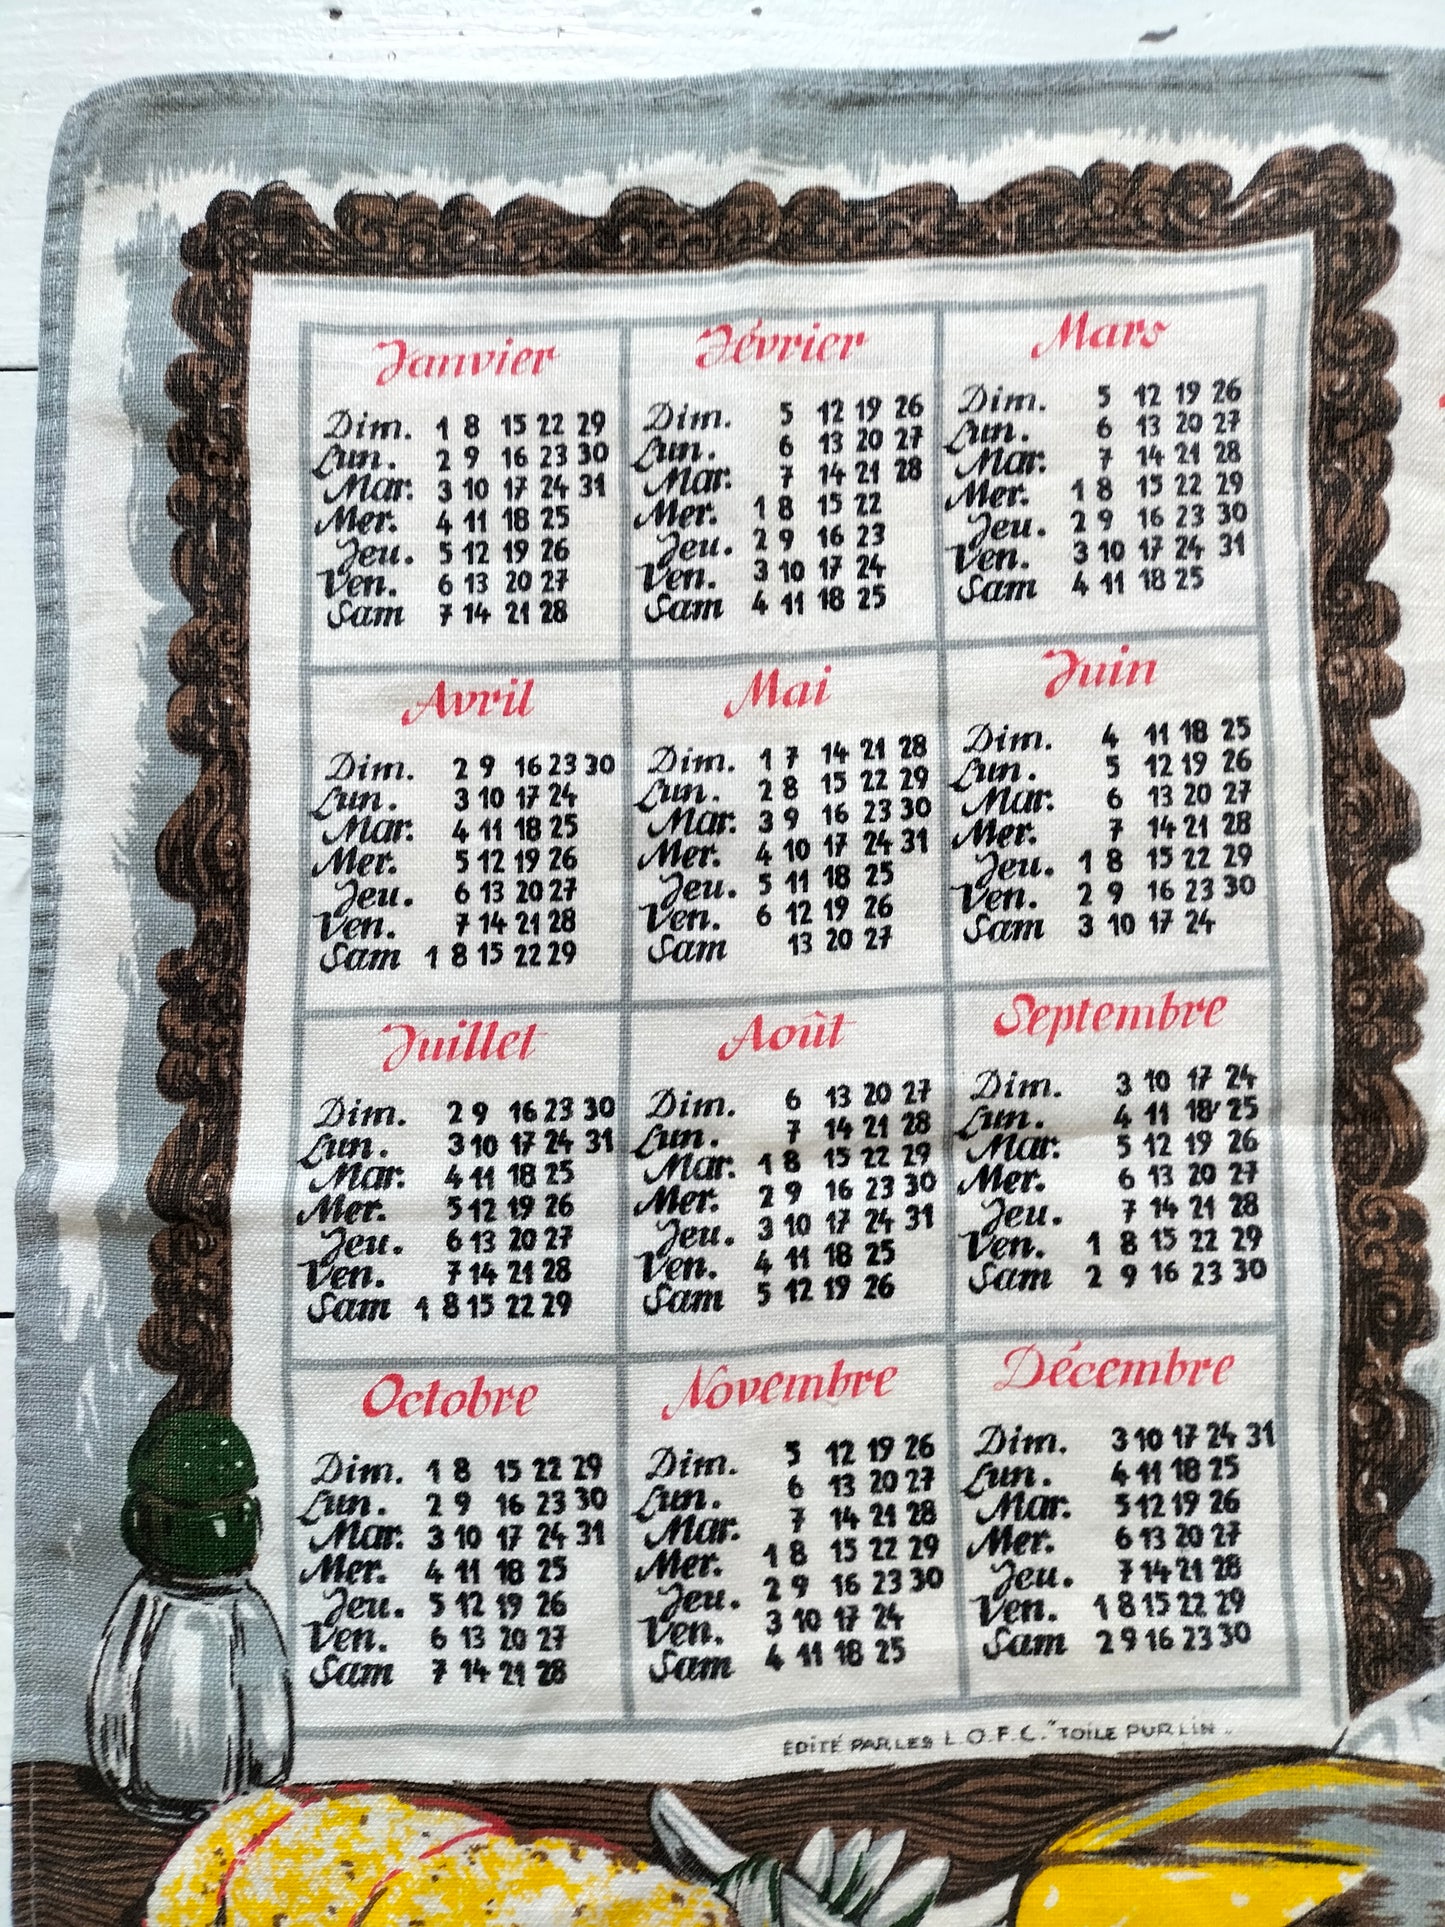 Janvier
Dim. 1 8 15 22 29
Lun. 2 9 16 23 30
Mar. 3 10 17 24 31
Mer. 4 11 18 25
Jeu. 5 12 19 26
Ven. 6 13 20 27
Sam 7 14 21 28
Février
Dim. 5 12 19 26
Lun. 6 13 20 27
Mar. 7 14 21 28
Mer. 1 8 15 22
Jeu. 2 9 16 23
Ven. 3 10 17 24
Sam 4 11 18 25
Mars
Dim. 5 12 19 26
Lun. 6 13 20 27
Mar. 7 14 21 28
Mer. 1 8 15 22 29
Jeu. 2 9 16 23 30
Ven. 3 10 17 24 31
Sam 4 11 18 25
Avril
Dim. 2 9 16 23 30
Lun. 3 10 17 24
Mar. 4 11 18 25
Mer. 5 12 19 26
Jeu. 6 13 20 27
Ven. 7 14 21 28
Sam 1 8 15 22 29
Mai
Dim. 1 7 14 21 28
Lun. 2 8 15 22 29
Mar. 3 9 16 23 30
Mer. 4 10 17 24 31
Jeu. 5 11 18 25
Ven. 6 12 19 26
Sam 13 20 27
Juin
Dim. 4 11 18 25
Lun. 5 12 19 26
Mar. 6 13 20 27
Mer. 7 14 21 28
Jeu. 1 8 15 22 29
Ven. 2 9 16 23 30
Sam 3 10 17 24
Juillet
Dim. 2 9 16 23 30
Lun. 3 10 17 24 31
Mar. 4 11 18 25
Mer. 5 12 19 26
Jeu. 6 13 20 27
Ven. 7 14 21 28
Sam 1 8 15 22 29
Août
Dim. 6 13 20 27
Lun. 7 14 21 28
Mar. 1 8 15 22 29
Mer. 2 9 16 23 30
Jeu. 3 10 17 24 31
Ven. 4 11 18 25
Sam 5 12 19 26
Septembre
Dim. 3 10 17 24
Lun. 4 11 18 25
Mar. 5 12 19 26
Mer. 6 13 20 27
Jeu. 7 14 21 28
Ven. 1 8 15 22 29
Sam 2 9 16 23 30
Octobre
Dim. 1 8 15 22 29
Lun. 2 9 16 23 30
Mar. 3 10 17 24 31
Mer. 4 11 18 25
Jeu. 5 12 19 26
Ven. 6 13 20 27
Sam 7 14 21 28
Novembre
Dim. 5 12 19 26
Lun. 6 13 20 27
Mar. 7 14 21 28
Mer. 1 8 15 22 29
Jeu. 2 9 16 23 30
Ven. 3 10 17 24
Sam 4 11 18 25
Décembre
Dim. 3 10 17 24 31
Lun. 4 11 18 25
Mar. 5 12 19 26
Mer. 6 13 20 27
Jeu. 7 14 21 28
Ven. 1 8 15 22 29
Sam 2 9 16 23 30
ÉDITÉ PAR LES L.O.F.C. "TOILE PUR LIN"